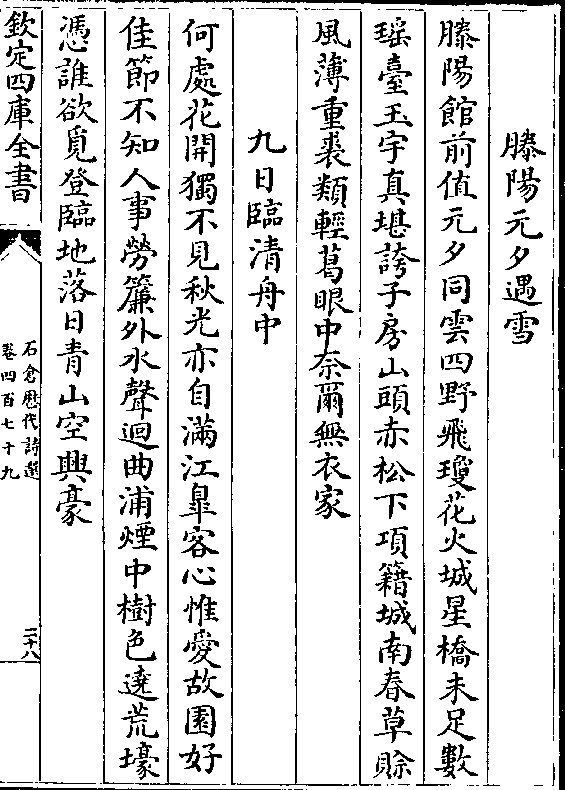 滕陽元夕遇雪
滕陽館前值元夕同雲四野飛瓊花火城星橋未足數
瑶臺玉宇真堪誇子房山頭赤松下項籍城南春草賖
風薄重裘類輕葛眼中奈爾無衣家
九日臨清舟中
何處花開獨不見秋光亦自滿江臯客心惟愛故園好
佳節不知人事勞簾外水聲迴曲浦煙中樹色遶荒壕
憑誰欲覓登臨地落日青山空興豪
欽定四庫全書
石倉歴代詩選
卷四百七十九
二十八